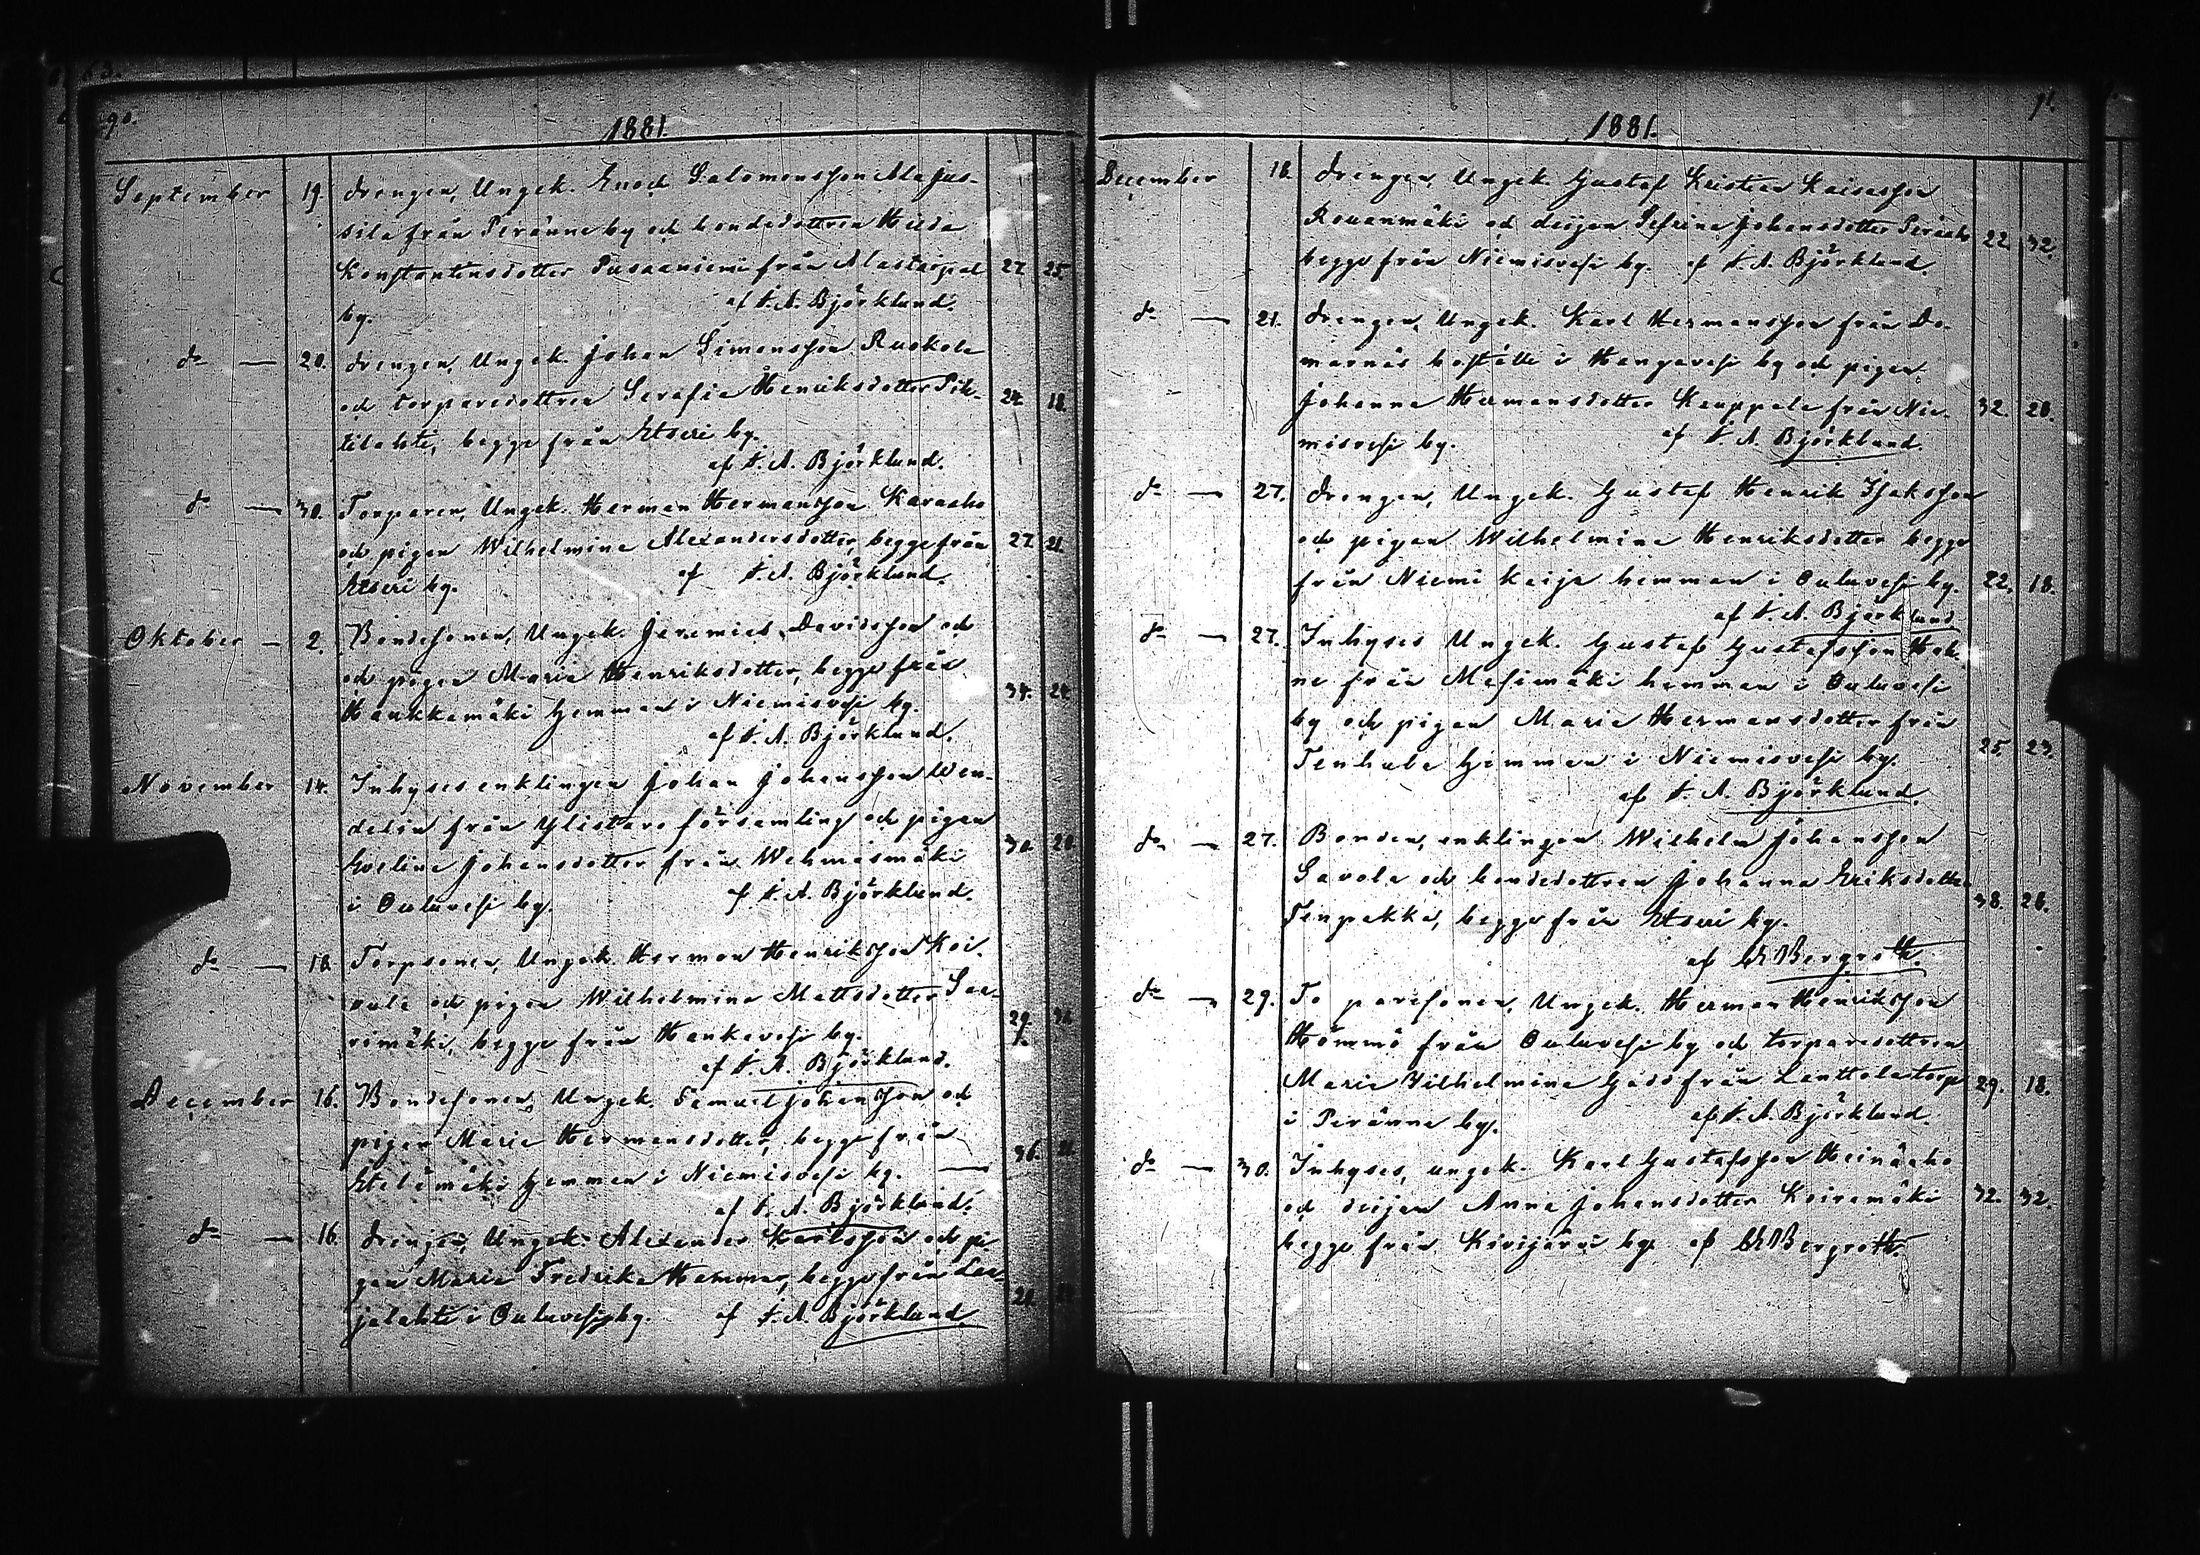 90.
1881.
September 19. Drengen, Ungk. Enock Salomonsson Ala jus-
sila från Peränne by och bondedottren Hilda
Konstantinsdotter Pusaaniemi från Alastaipal 27 25.
by. af F. A. Björklund.
do — 20. Drengen, Ungk. Johan Simonsson Ruokola
och torparedottren Serafia Henriksdotter Pik-
kilahti, begge från Etseri by. 24. 18.
af F. A. Björklund.
do — 30. Torparen, Ungk. Herman Hermansson Karaaho
och pigan Wilhelmina Alexandersdotter, begge från 27. 21.
Etseri by. af F. A. Björklund.
Oktober — 2. Bondesonen, Ungk. Jeremias Davidsson och
och pigan Maria Henriksdotter, begge från
Haukkamäki hemman i Niemisvesi by. 34. 24.
af F. A. Björklund.
November 14. Inhyses enklingen Johan Johansson Wen-
delin från Ylistaro församling och pigan
Evelina Johansdotter från Wehmasmäki 30 20.
i Ouluvesi by. af F. A. Björklund.
do — 18. Torpsonen, Ungk. Herman Henriksson Koi-
vula och pigan Wilhelmina Mattsdotter Saa-
rimäki, begge från Hankavesi by. 29.
af F. A. Björklund.
December 16. Bondesonen, Ungk. Samuel Johansson och
pigan Maria Hermansdotter, begge från
Etelämäki hemman i Niemisvesi by. — 36.
af F. A. Björklund.
do — 16. Drengen, Ungk. Alexander Karlsson och pi-
gan Maria Fredrika Hemmer, begge från
jalahti i Ouluvesi by. af F. A. Björklund.
91.
1881.
December 18. Drengen, Ungk. Gustaf Kristian Kaisasson
Rouanmäki och deijan Sefrina Johansdotter 22 32.
begge från Niemisvesi by. af F. A. Björklund.
do — 21. Drengen, Ungk. Karl Hermansson från Do-
marnäs boställe i Hankavesi by och pigan
Johanna Hermansdotter Kauppala från Nie- 32. 20.
misvesi by. af F. A. Björklund.
do — 27. Drengen, Ungk. Gustaf Henrik Isaksson
och pigan Wilhelmina Henriksdotter begge
från Niemi Keija hemman i Ouluvesi by. 22. 18.
af F. A. Björklund.
do — 27. Inhyses Ungk. Gustaf Gustafsson Hak-
ne från Mesimäki hemman i Ouluvesi
by och pigan Maria Hermansdotter från
Tenhula hemman i Niemisvesi by. 25 23.
af F. A. Björklund.
do — 27. Bonden, enklingen Wilhelm Johansson
Savola och bondedottren Johanna Eriksdotter
Tenpakka, begge från Etseri by. 38. 26.
af Bergroth.
do — 29. To paresonen, Ungk. Herman Henriksson
Hömmö från Ouluvesi by och torparedottren
Maria Wilhelmina från Lenttola torp 29. 18.
i Peränne by. af F. A. Björklund.
do — 30. Inhyses, ungk. Karl Gustafsson Heinäaho
och deijan Anna Johansdotter Koiramäki 32. 32.
begge från Kivijärvi by af Bergroth.